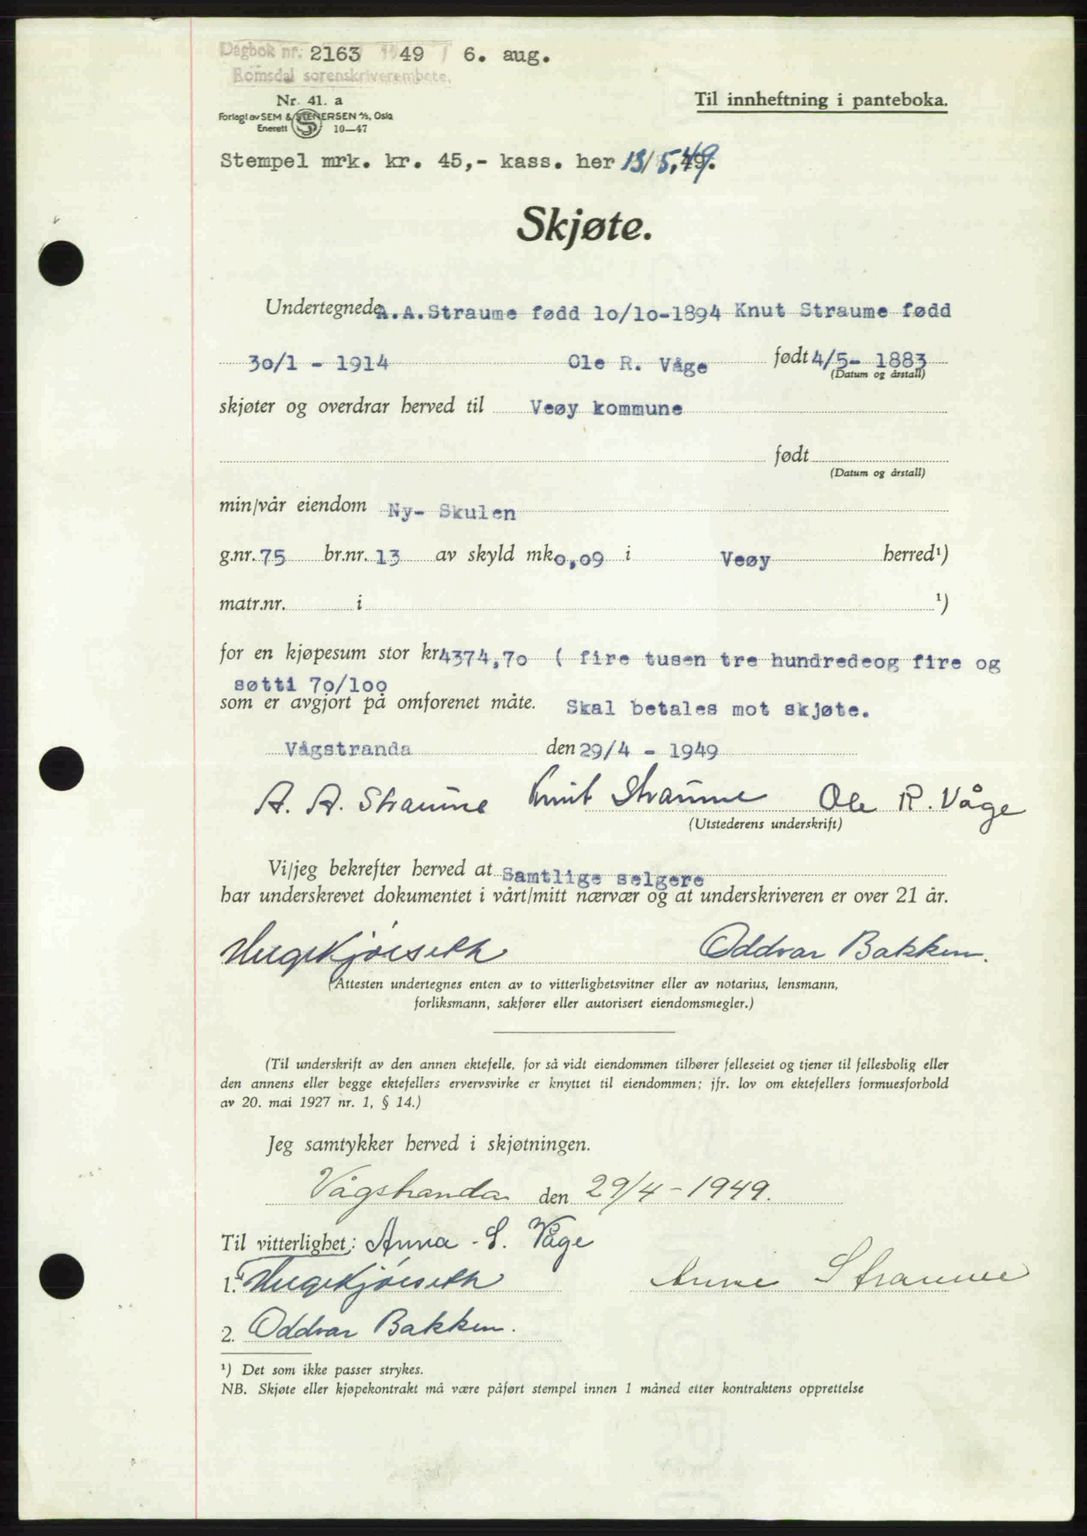 Dagbok nr. 2163 1949 / 6. aug.
Romsdal sorenskriverembete.
Nr. 41. a
Til innheftning i panteboka.
Forlagt av SEM & STENERSEN A/S, Oslo
Enerett S 10—47
Stempel mrk. kr. 45,- kass. her 13/5.49.
Skjøte.
Undertegnede A.A.Straume fødd 10/10-1894 Knut Straume fødd
30/1 - 1914 Ole R. Våge født 4/5- 1883
(Datum og årstall)
skjøter og overdrar herved til Veøy kommune
født
(Datum og årstall)
min/vår eiendom Ny- Skulen
g.nr. 75 br.nr. 13 av skyld mk 0,09 i Veøy herred¹)
matr.nr. i ¹)
for en kjøpesum stor kr 4374,70 ( fire tusen tre hundredeog fire og
søtti 70/100
som er avgjort på omforenet måte. Skal betales mot skjøte.
Vågstranda den 29/4 - 1949
A. A. Straume Knut Straume Ole R. Våge
(Utstederens underskrift)
Vi/jeg bekrefter herved at Samtlige selgere
har underskrevet dokumentet i vårt/mitt nærvær og at underskriveren er over 21 år.
Oddvar Bakken.
(Attesten undertegnes enten av to vitterlighetsvitner eller av notarius, lensmann,
forliksmann, sakfører eller autorisert eiendomsmegler.)
(Til underskrift av den annen ektefelle, for så vidt eiendommen tilhører felleseiet og tjener til fellesbolig eller
den annens eller begge ektefellers ervervsvirke er knyttet til eiendommen; jfr. lov om ektefellers formuesforhold
av 20. mai 1927 nr. 1, § 14.)
Jeg samtykker herved i skjøtningen.
Vågstranda den 29/4 - 1949.
Til vitterlighet: Anna S. Våge
1. Anne Straume
2. Oddvar Bakken.
¹) Det som ikke passer strykes.
NB. Skjøte eller kjøpekontrakt må være påført stempel innen 1 måned etter kontraktens opprettelse